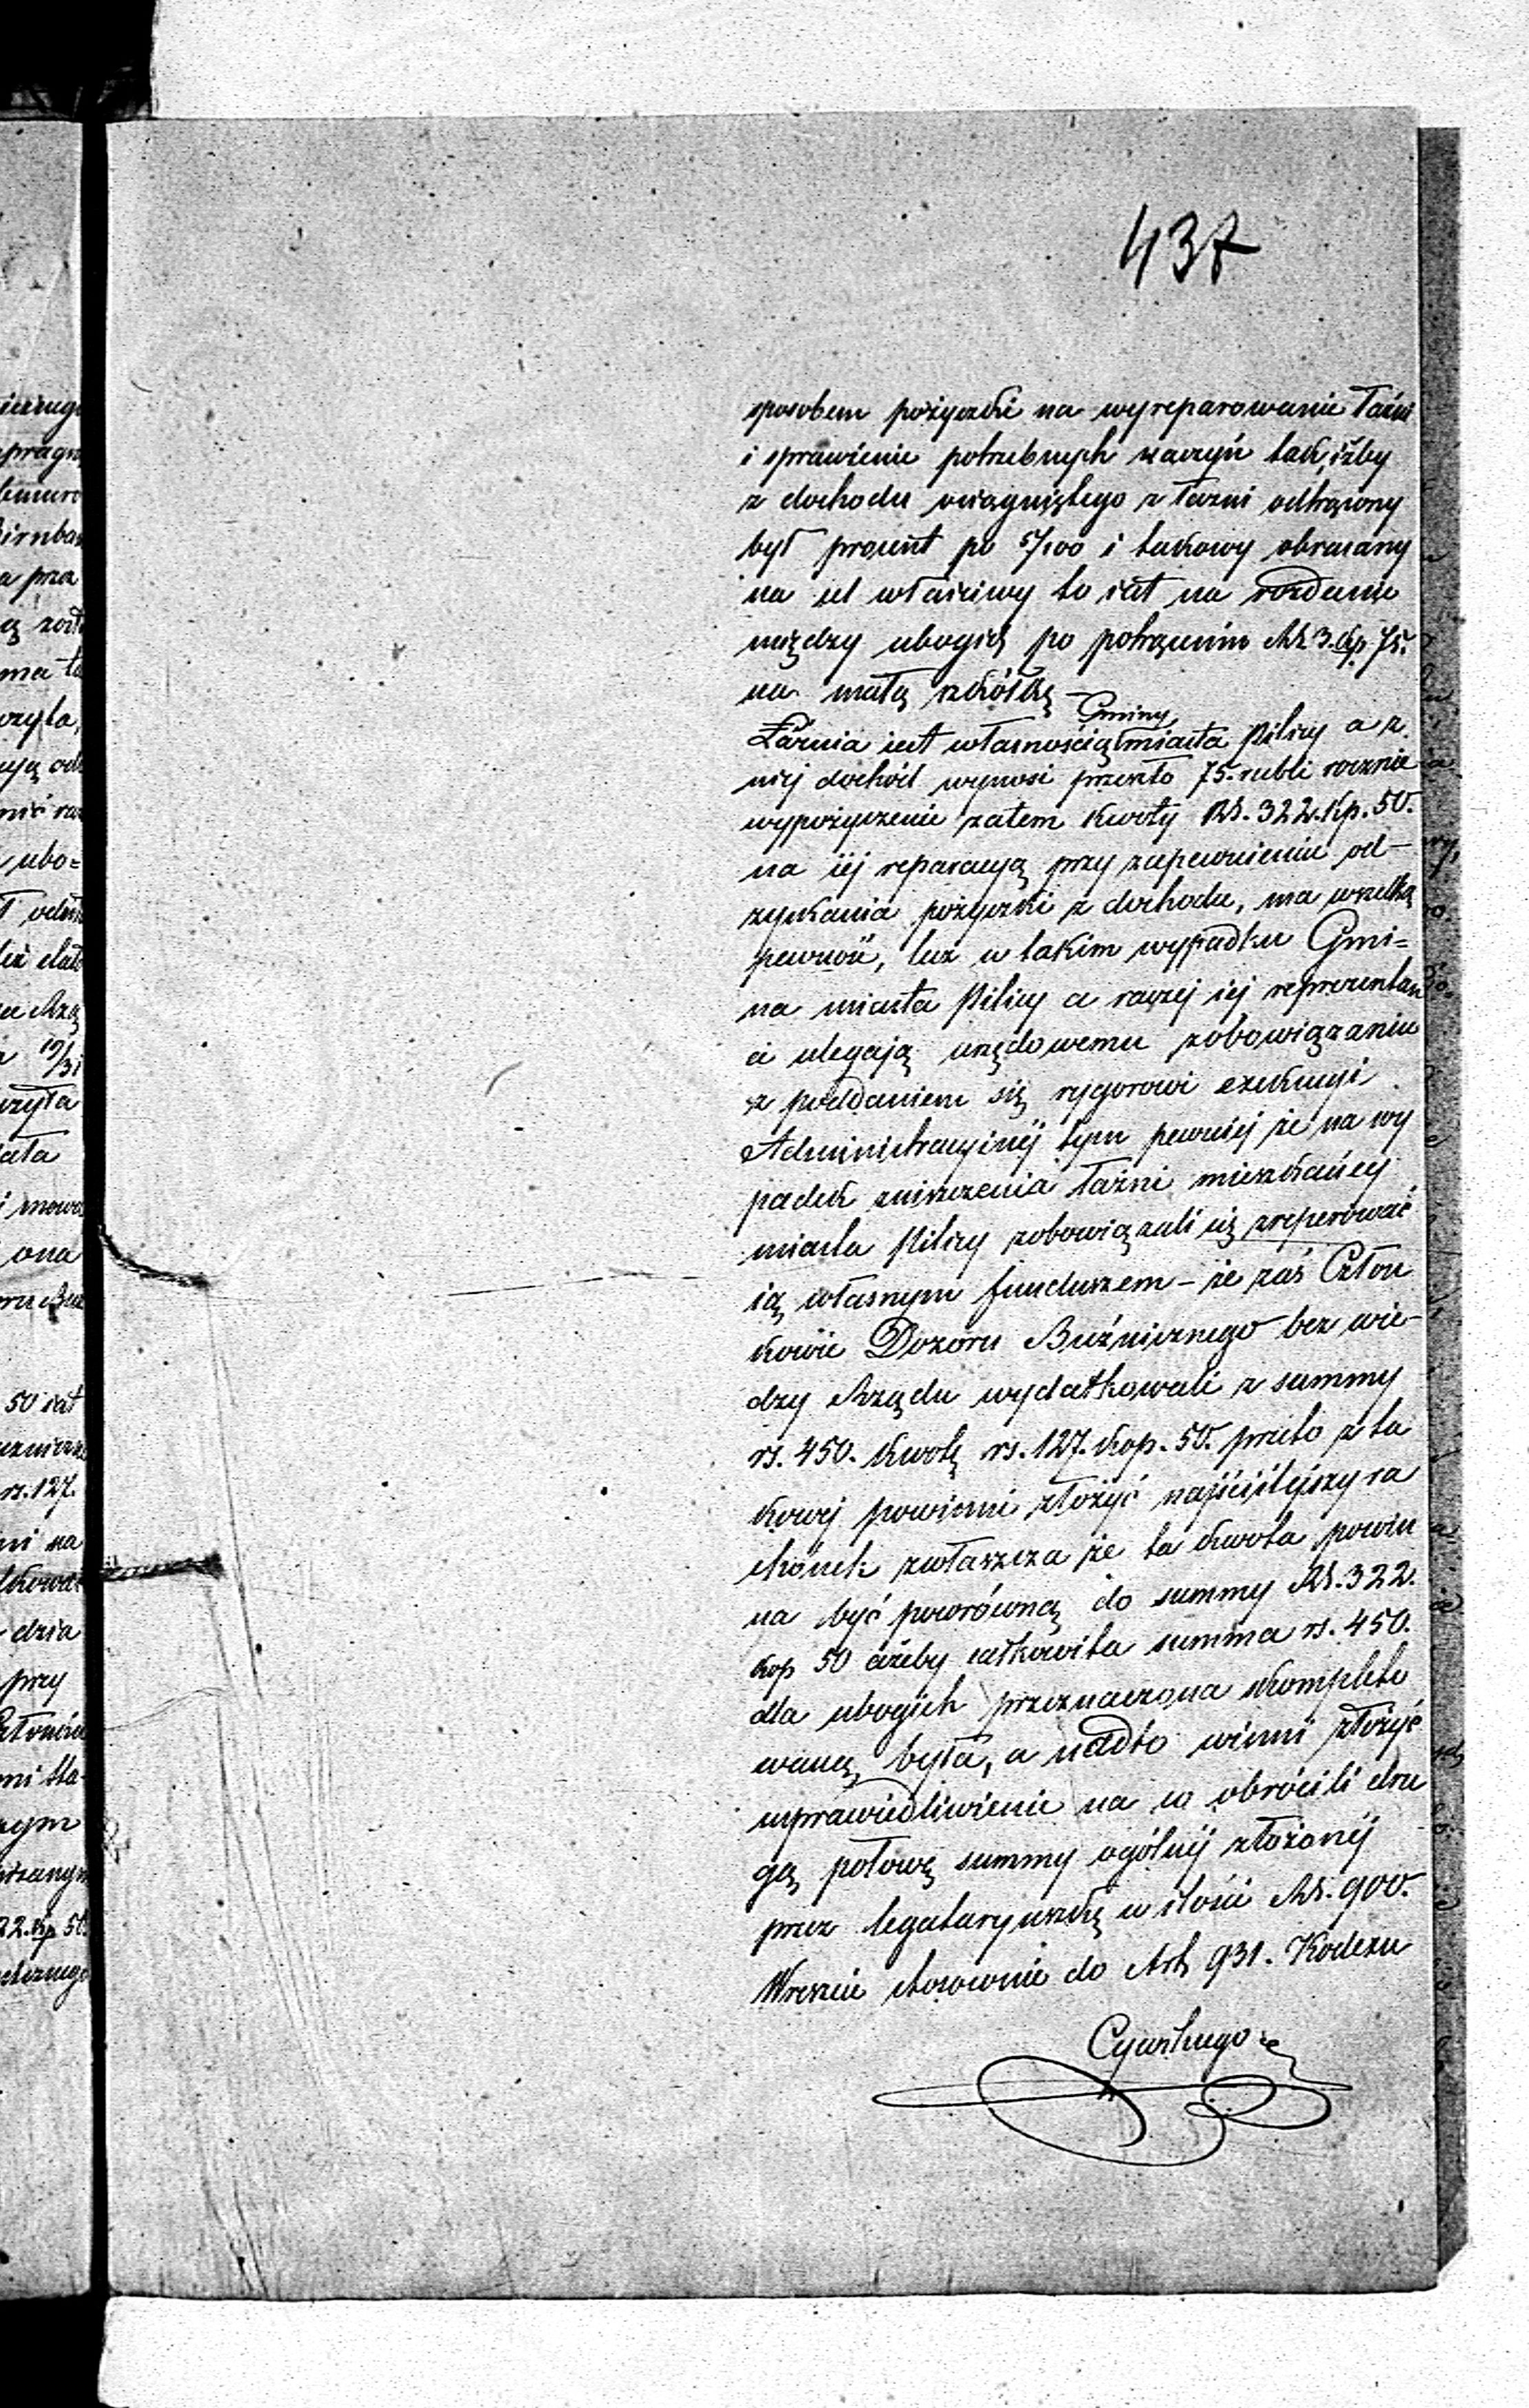 437
sposobem pożyczki na wyreparowanie Łaźni
i sprawienie potrzebnych naczyń tak, iżby
z dochodu osiągniętego z łazni odtrącony
był procent po 5/100 i takowy obracany
na cel właściwy to iest na rozdanie
między ubogich po potrąceniu Rs 3. kp. 75.
na małą szkółkę
Gminy
Łaźnia iest własnością miasta Pilicy a z
niej dochód wynosi przeszło 75. rubli rocznie
wypożyczenie zatem kwoty Rs. 322. kp. 50.
na iej reparacyą przy zapewnieniu od-
zyskania pożyczki z dochodu, ma wszelką
pewność, lecz w takim wypadku Gmi=
na miasta Pilicy a raczej iej reprezentan
ci ulegają urzędowemu zobowiązaniu
z poddaniem się rygorowi exekucyi
Administracyinéj tym pewniej że na wy
padek zniszczenia łaźni mieszkańcy
miasta Pilicy zobowiązali się zreperować
ią własnym funduszem – że zaś Człon
kowie Dozoru Bużnicznego bez wie-
dzy Rządu wydatkowali z summy
rs. 450. kwotę rs. 127. kop. 50. przeto z ta
kowej powinni złożyć najściślejszy ra
chunek zwłaszcza że ta kwota powin
na być powróconą do summy Rs. 322.
kop 50 ażeby całkowita summa rs. 450.
dla ubogich przeznaczona skompleto
waną była, a nadto winni złożyć
usprawiedliwienie na co obrócili dru
gą połowę summy ogólnéj złożonéj
przez legataryuszkę w ilości Rs. 900.
Wreszcie stosownie do Art 931. Kodexu
Cywilnego
ubo=
50 iest
rs. 127.
dzia
przy
ona